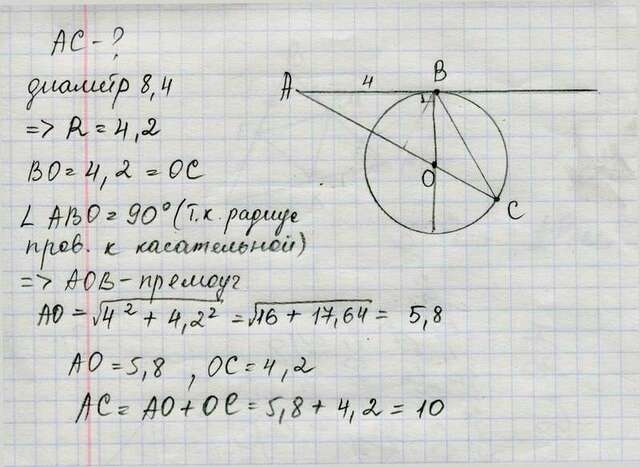 AC - ?
диаметр 8,4
=> R = 4,2
BO = 4,2 = OC
∠ ABO = 90° (т.к. радиус
пров. к касательной)
=> AOB - премоуг
AO = √4² + 4,2² = √16 + 17,64 = 5,8
AO = 5,8 , OC = 4,2
AC = AO + OC = 5,8 + 4,2 = 10
A
4
B
O
C